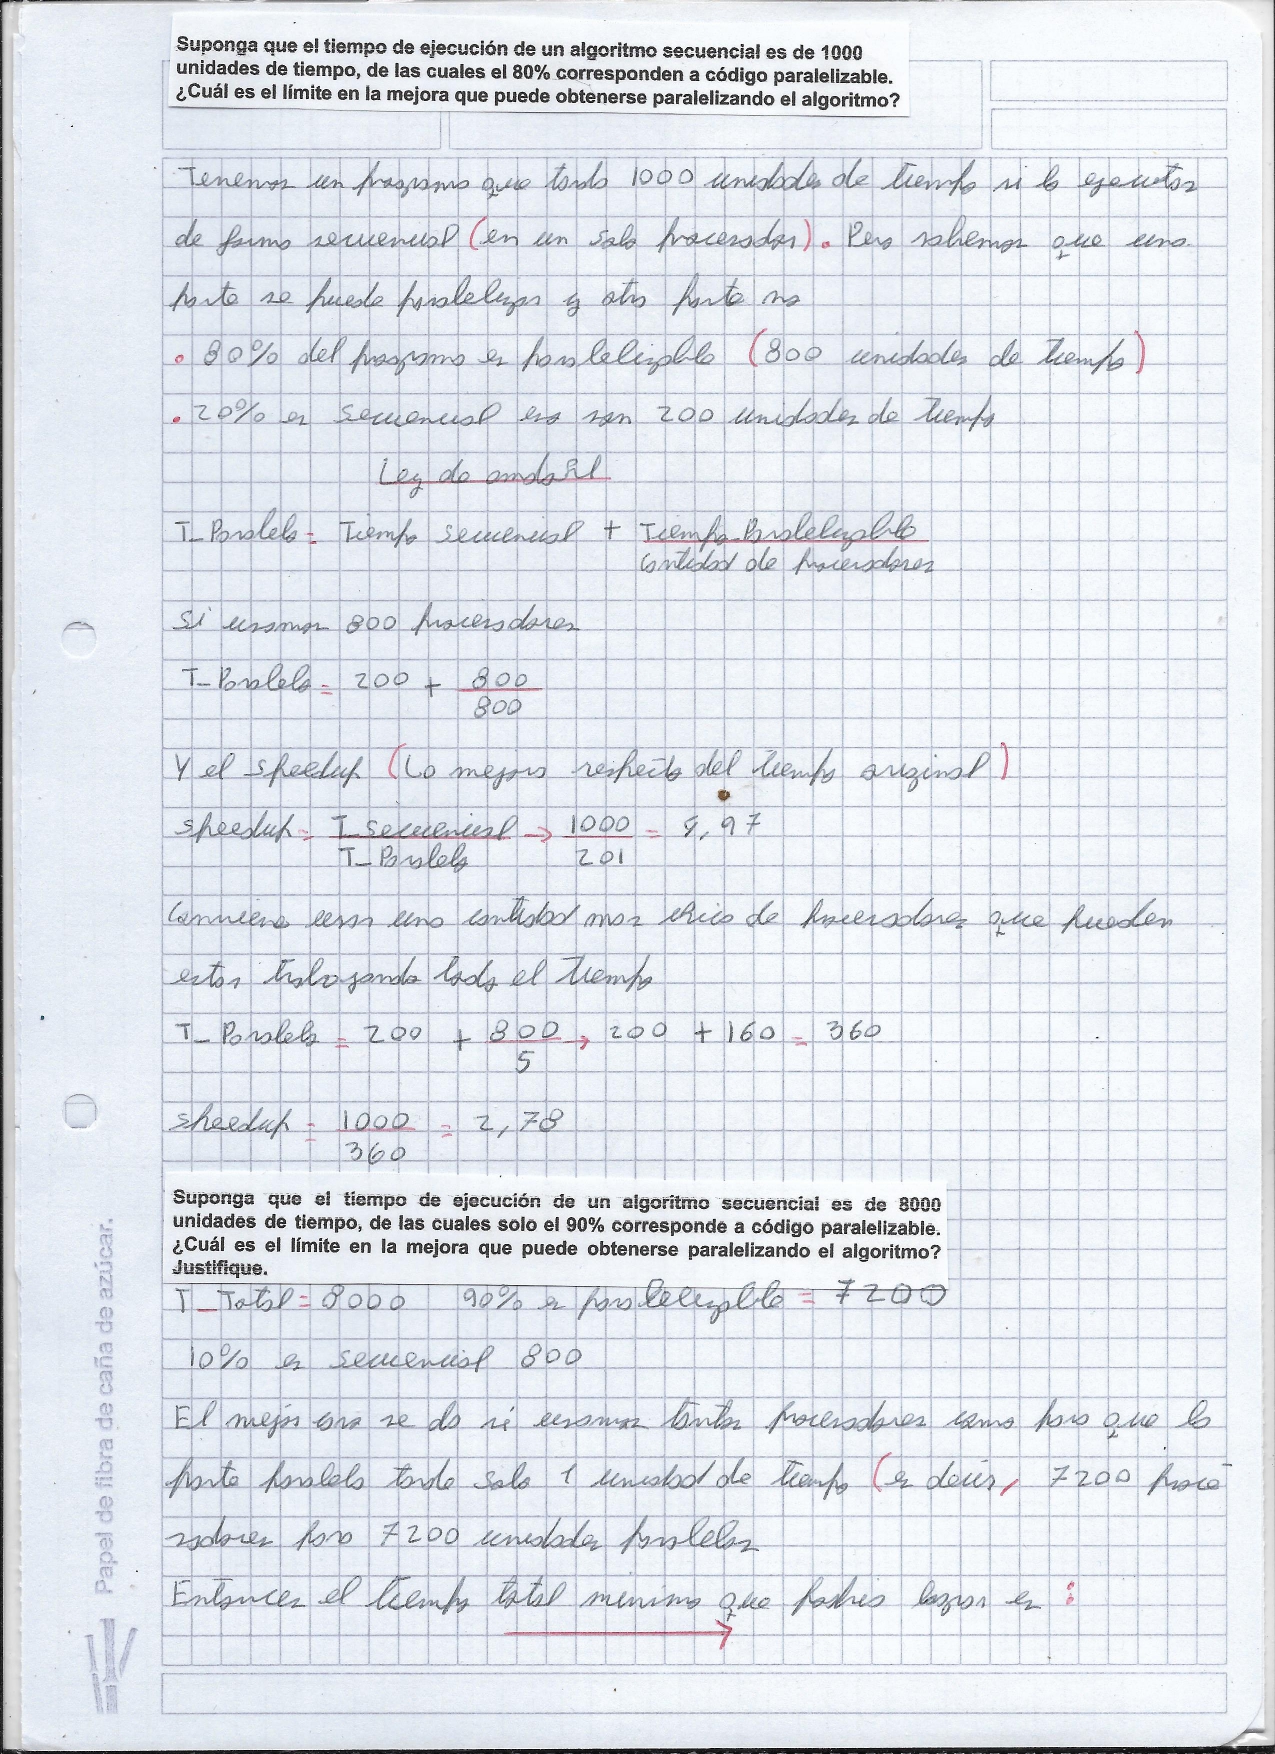 Suponga que el tiempo de ejecución de un algoritmo secuencial es de 1000
unidades de tiempo, de las cuales el 80% corresponden a código paralelizable.
¿Cuál es el límite en la mejora que puede obtenerse paralelizando el algoritmo?
Tenemos un programa que tarda 1000 unidades de tiempo si lo ejecutas
de forma secuencial (en un solo procesador). Pero sabemos que una
parte se puede paralelizar y otra parte no
• 80% del programa es paralelizable (800 unidades de tiempo)
• 20% es secuencial eso son 200 unidades de tiempo
Ley de amdahl
T_Paralelo = Tiempo secuencial + Tiempo Paralelizable
Cantidad de procesadores
Si usamos 800 procesadores
T_Paralelo = 200 + 800
800
Y el speedup (La mejora respecto del tiempo original)
speedup = T_secuencial → 1000 = 4,97
T_Paralelo 201
Conviene usar una cantidad mas chica de procesadores que puedan
estar trabajando todo el tiempo
T_Paralelo = 200 + 800 → 200 + 160 = 360
5
speedup = 1000 = 2,78
360
Suponga que el tiempo de ejecución de un algoritmo secuencial es de 8000
unidades de tiempo, de las cuales solo el 90% corresponde a código paralelizable.
¿Cuál es el límite en la mejora que puede obtenerse paralelizando el algoritmo?
Justifique.
T_Total = 8000 90% es paralelizable = 7200
10% es secuencial 800
El mejor caso se da si usamos tantos procesadores como para que la
parte paralela tarde solo 1 unidad de tiempo (es decir, 7200 proce
sadores para 7200 unidades paralelas
Entonces el tiempo total minimo que podria lograr es :
→
Papel de fibra de caña de azúcar.